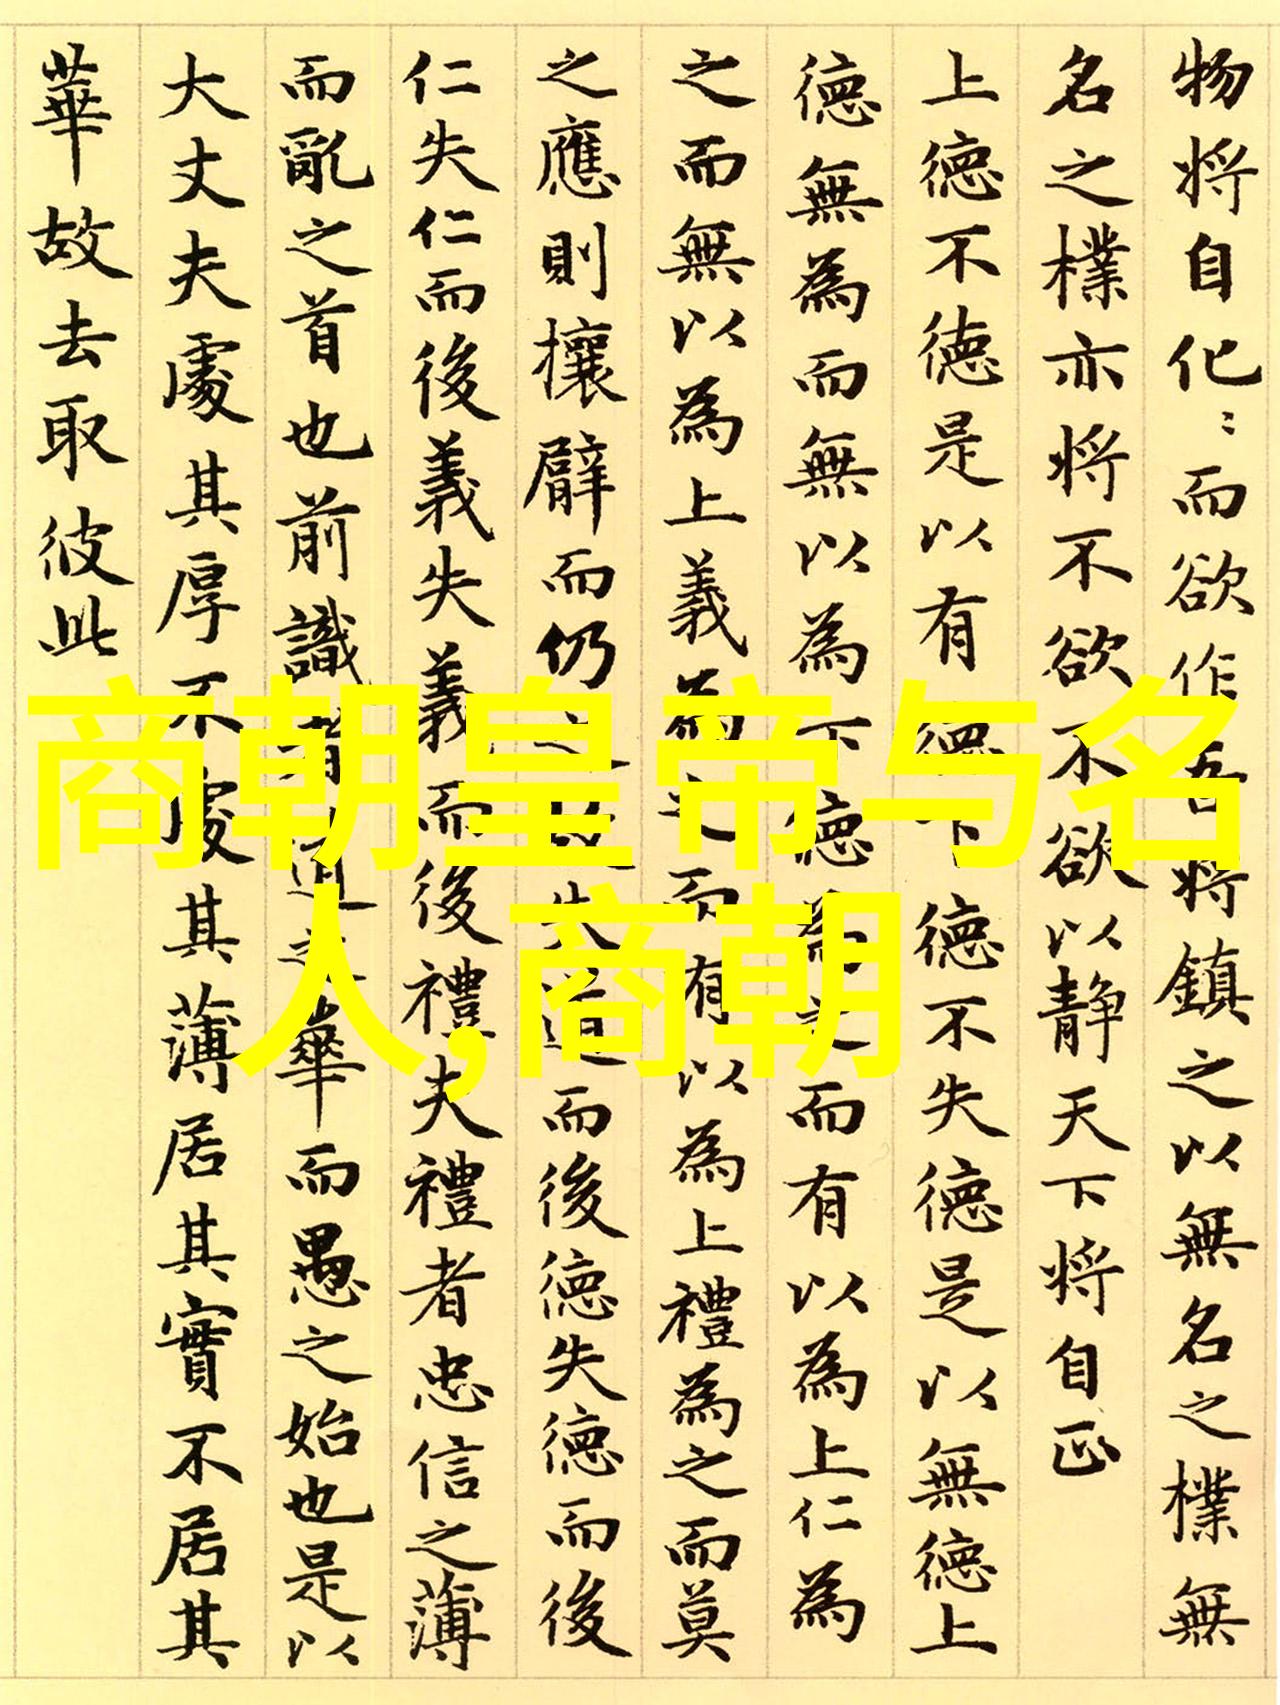 物将自化〻而欲作吾将鎮之以無名之樸無
名之樸亦将不欲不欲以静天下将自正
上德不德是以有德下德不失德是以無德上
德無為而無以為下德為之而有以為上仁為
之而無以為上義為之而有以為上禮為之而莫
之應則攘臂而仍之故失道而後德失德而後
仁失仁而後義失義而後禮夫禮者忠信之薄
而亂之首也前識者道之華而愚之始也是以
大丈夫處其厚不處其薄居其實不居其
華故去取彼此
商朝皇帝与名
人,商朝